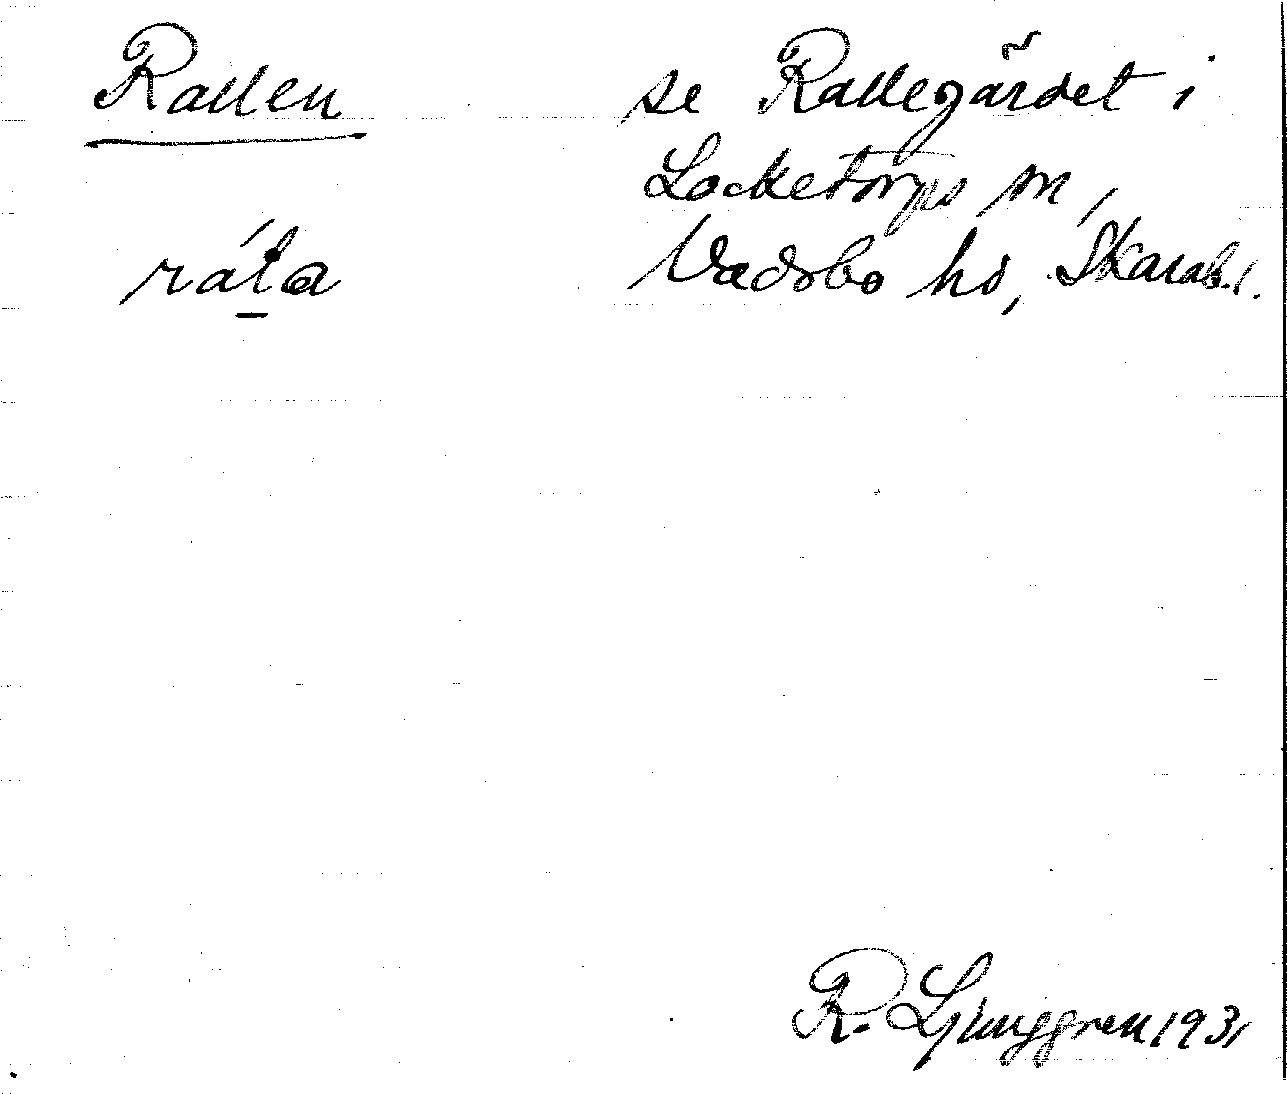 Rallen
se Rallegärdet i
Locketorps sn,
rála
Vadsbo hd, Skarab.l.
R. Ljunggren 1931